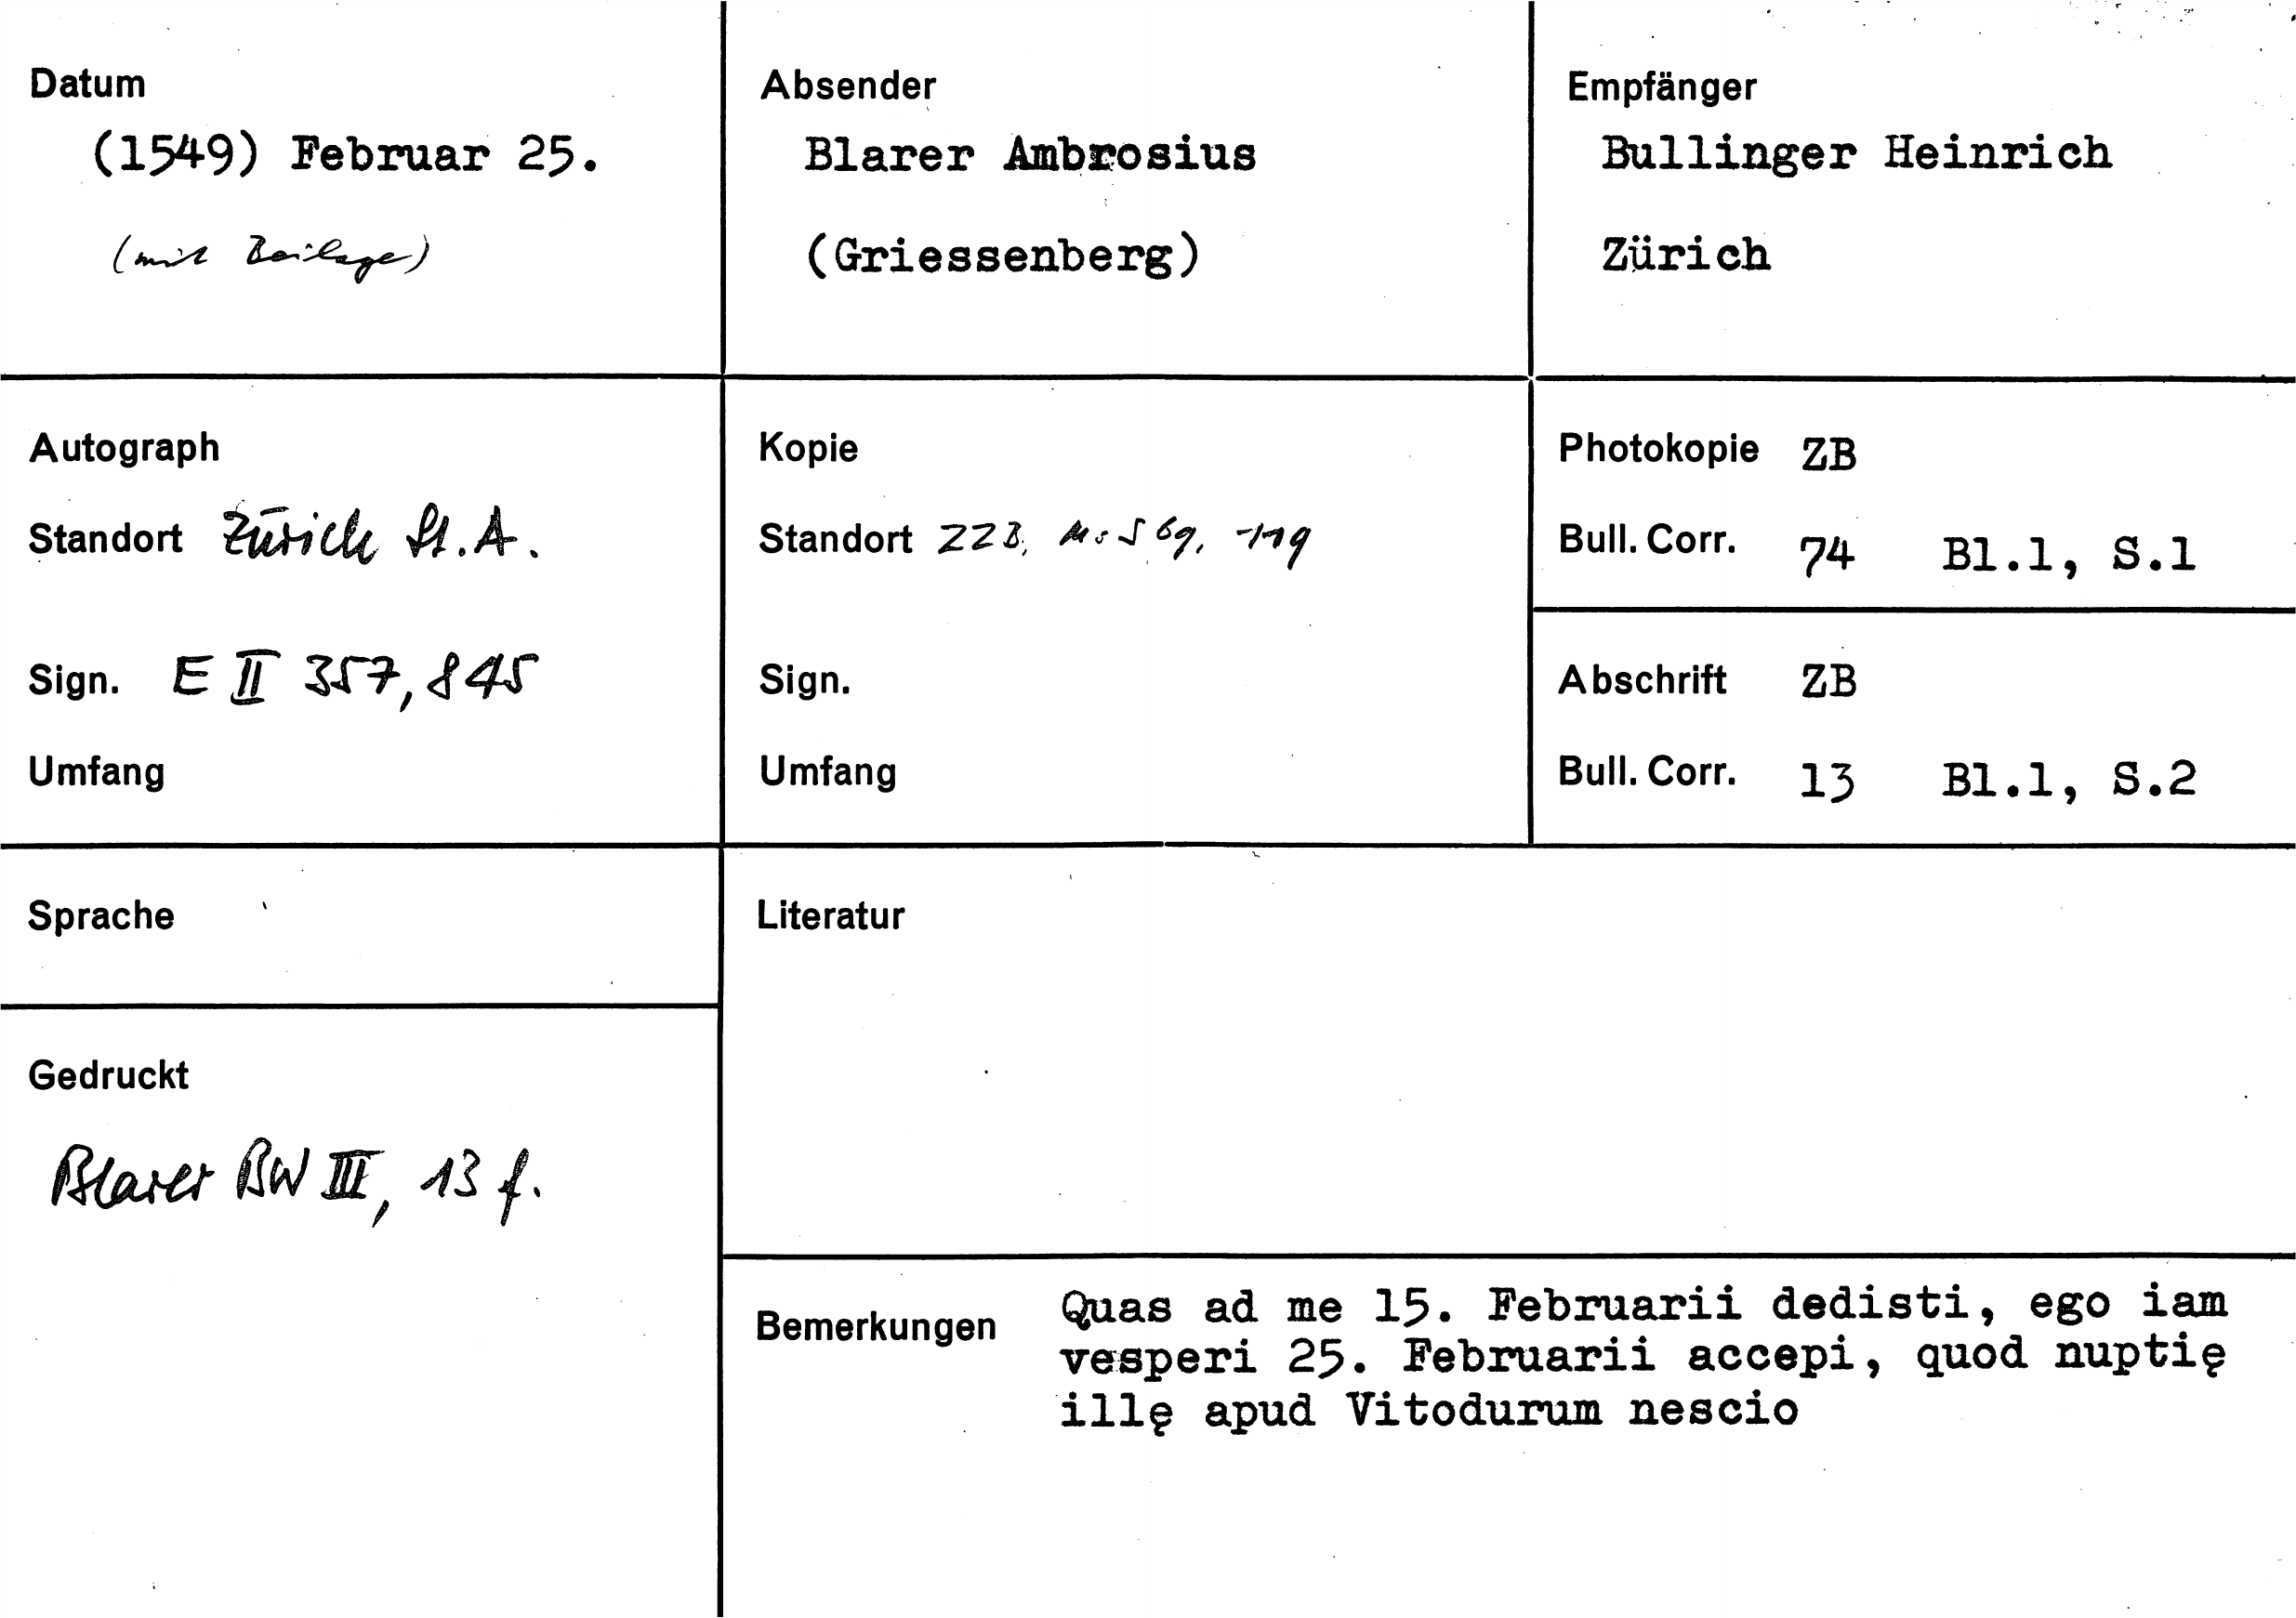 Datum
(1549) Februar 25.
(mit Beilage)
Absender
Blarer Ambrosius
(Griessenberg)
Empfänger
Bullinger Heinrich
Zürich
Autograph
Standort Zürich St.A.
Sign. E II 357, 845
Umfang
Kopie
Standort ZZB, Ms S 69,
Sign.
Umfang
Photokopie ZB
Bull. Corr. 74 Bl.1, S.1
Abschrift ZB
Bull. Corr. 13 Bl.1, S.2
Sprache
Gedruckt
Blarer BW III, 13 f.
Literatur
Bemerkungen Quas ad me 15. Februarii dedisti, ego iam
vesperi 25. Februarii accepi, quod nuptię
illę apud Vitodurum nescio